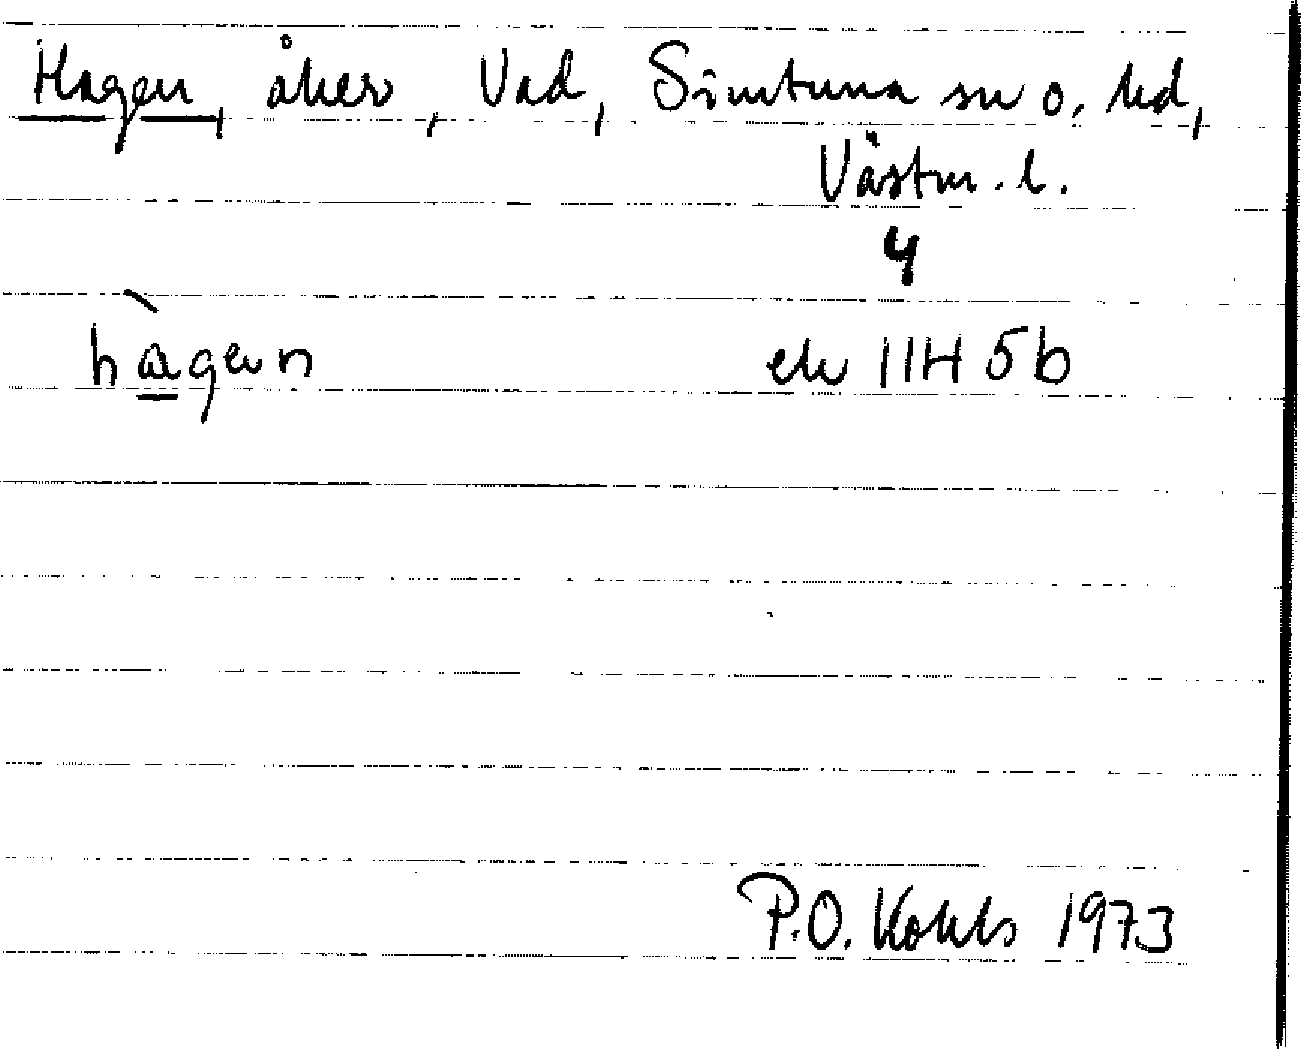 Hagen, åker, Vad, Simtuna sn o. hd,
Västm. l.
4
hàgen ek 11H 5b
P.O. Kohls 1973